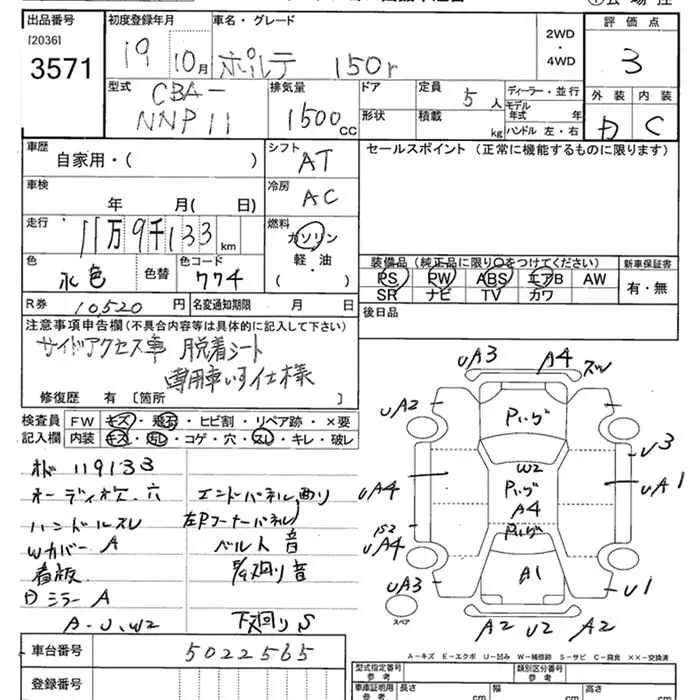 出品番号 初度登録年月 車名・グレード 2WD ・ 4WD 評価点
[2036]
3571 19 10月 ポルテ 150r 3
型式 CBA-NNP11 排気量 1500CC ドア 形状 定員 5人 積載 kg ディーラー・並行 モデル年式 年 ハンドル 左・右 外装 内装 C
車歴 自家用・( ) シフト AT セールスポイント (正常に機能するものに限ります)
車検 年 月( 日) 冷房 AC
走行 11万9千133km 燃料 ガソリン 軽油 ・ ( )
色 水色 色替 色コード 774
装備品 (純正品に限り○をつけてください) 新車保証書
PS PW ABS エアB AW 有・無
SR ナビ TV カワ
R券 10,520円 名変通知期限 月 日 後日品
注意事項申告欄(不具合内容等は具体的に記入して下さい)
サイドアクセス車 脱着シート
専用車いす仕様
修復歴 有 [箇所 ]
検査員 FW キズ・飛石・ヒビ割・リペア跡・×要
記入欄 内装 キズ・汚し・コゲ・穴・スレ・キレ・破レ
119133
オーディオ欠、穴
ハンドルスレ
Wカバー A
看板
ミラー A
A-U、W2
エンドパネル
左Rコーナーパネル
ベルト音
下廻りS
UA3 A4 ズレ
UA2
U3
UA4 UA1
UA4
UA3 U1
W2
A4
A1
A2 U2 A2
スペア
A-キズ E-エクボ U-凹み W-補修跡 S-サビ C-腐食 ××-交換済
車台番号 5022565
登録番号
型式指定番号 参考 類別区分番号 参考
車庫証明用 参考 長さ cm 幅 cm 高さ cm